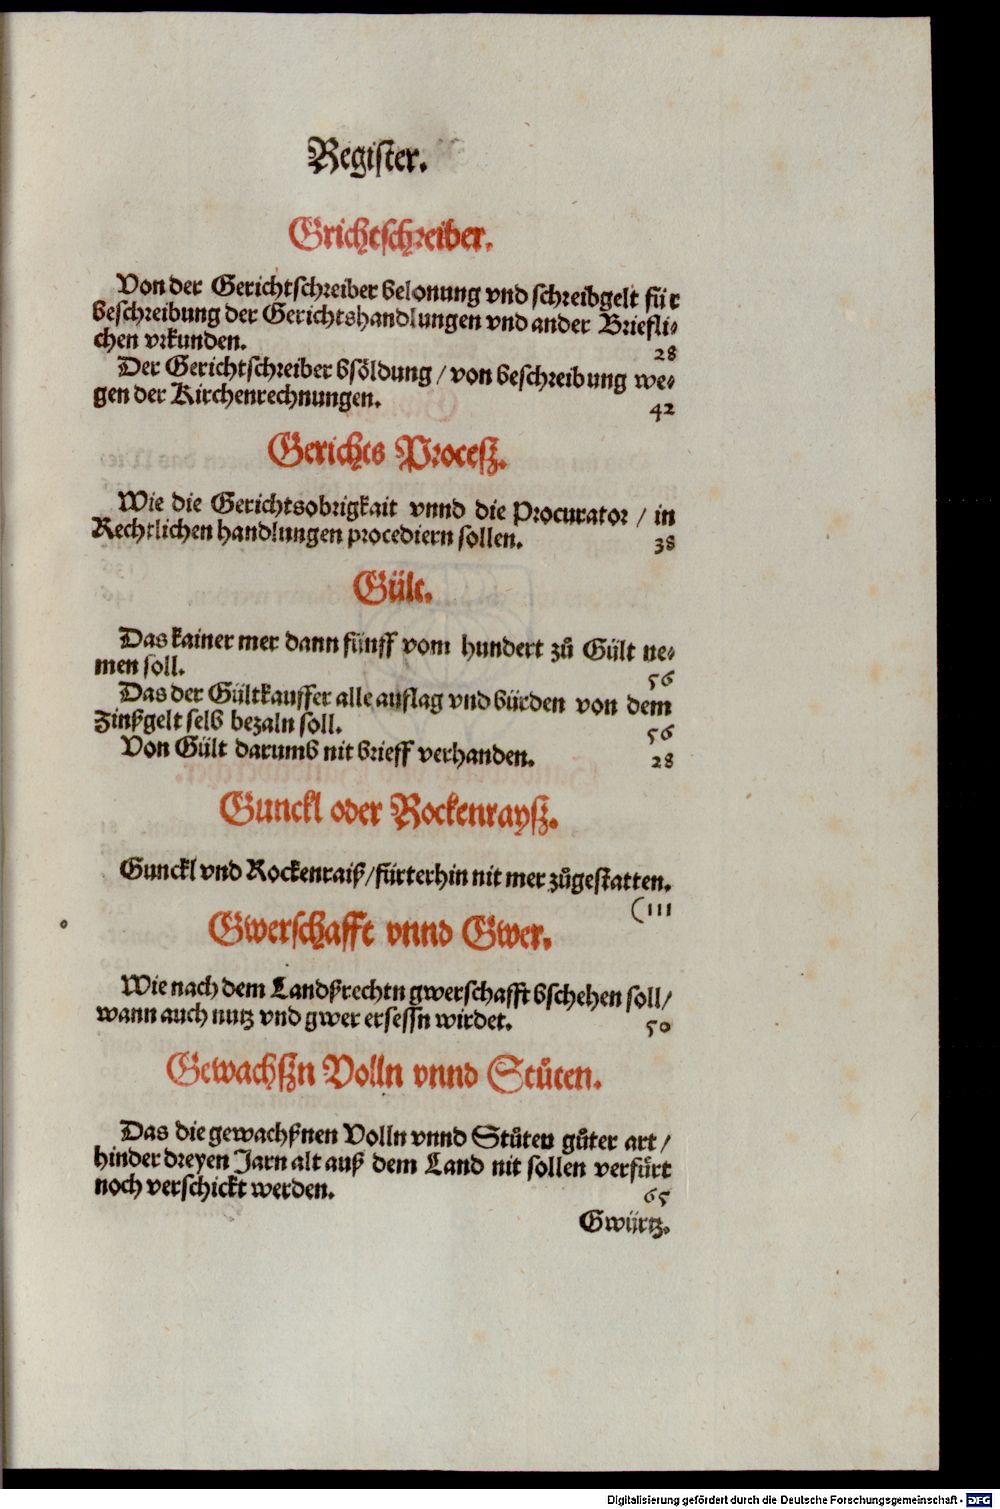 Register.
Grichtschreiber.
Von der Gerichtschreiber belonung vnd schreibgelt für
beschreibung der Gerichtshandlungen vnd ander Briefli⸗
chen vrkunden. 28
Der Gerichtschreiber bsöldung / von beschreibung we⸗
gen der Kirchenrechnungen. 42
Gerichts Procesz.
Wie die Gerichtsobrigkait vnnd die Procurator / in
Rechtlichen handlungen procediern sollen. 38
Gült.
Das kainer mer dann fünff vom hundert zů Gült ne⸗
men soll. 56
Das der Gültkauffer alle auflag vnd bürden von dem
Zinßgelt selb bezaln soll. 56
Von Gült darumb nit brieff verhanden. 28
Gunckl oder Rockenraysz.
Gunckl vnd Rockenraiß / fürterhin nit mer zůgestatten.
(111
Gwerschafft vnnd Gwer.
Wie nach dem Landßrechtn gwerschafft bschehen soll /
wann auch nutz vnd gwer ersessn wirdet. 50
Gewachszn Volln vnnd Stůten.
Das die gewachßnen Volln vnnd Stůten gůter art /
hinder dreyen Jarn alt auß dem Land nit sollen verfürt
noch verschickt werden. 65
Gwürtz.
Digitalisierung gefördert durch die Deutsche Forschungsgemeinschaft - DFG